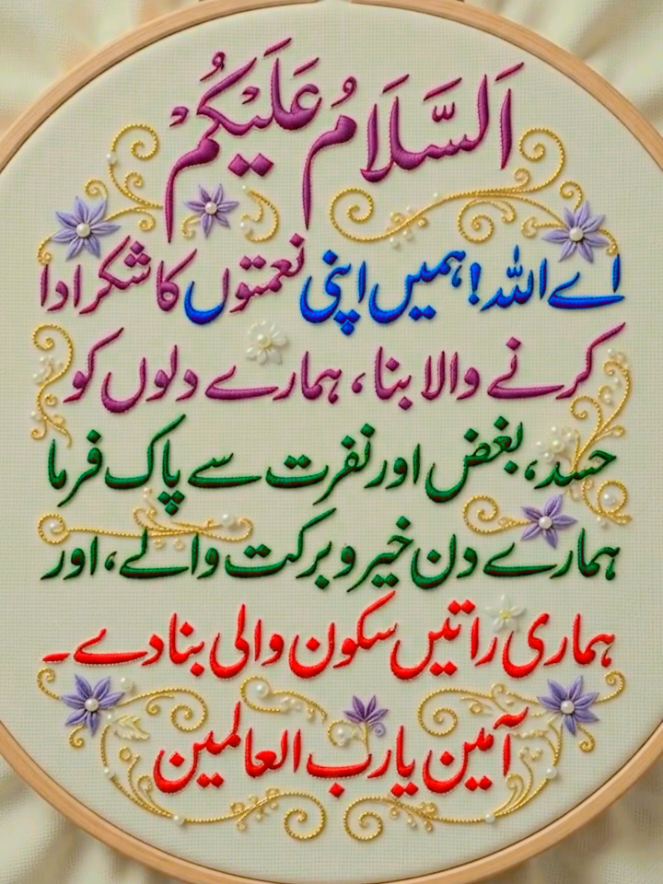 اَلسَّلَامُ عَلَيْكُمْ
اے اللہ! ہمیں اپنی نعمتوں کا شکر ادا
کرنے والا بنا، ہمارے دلوں کو
حسد، بغض اور نفرت سے پاک فرما
ہمارے دن خیر و برکت والے، اور
ہماری راتیں سکون والی بنا دے۔
آمین یا رب العالمین